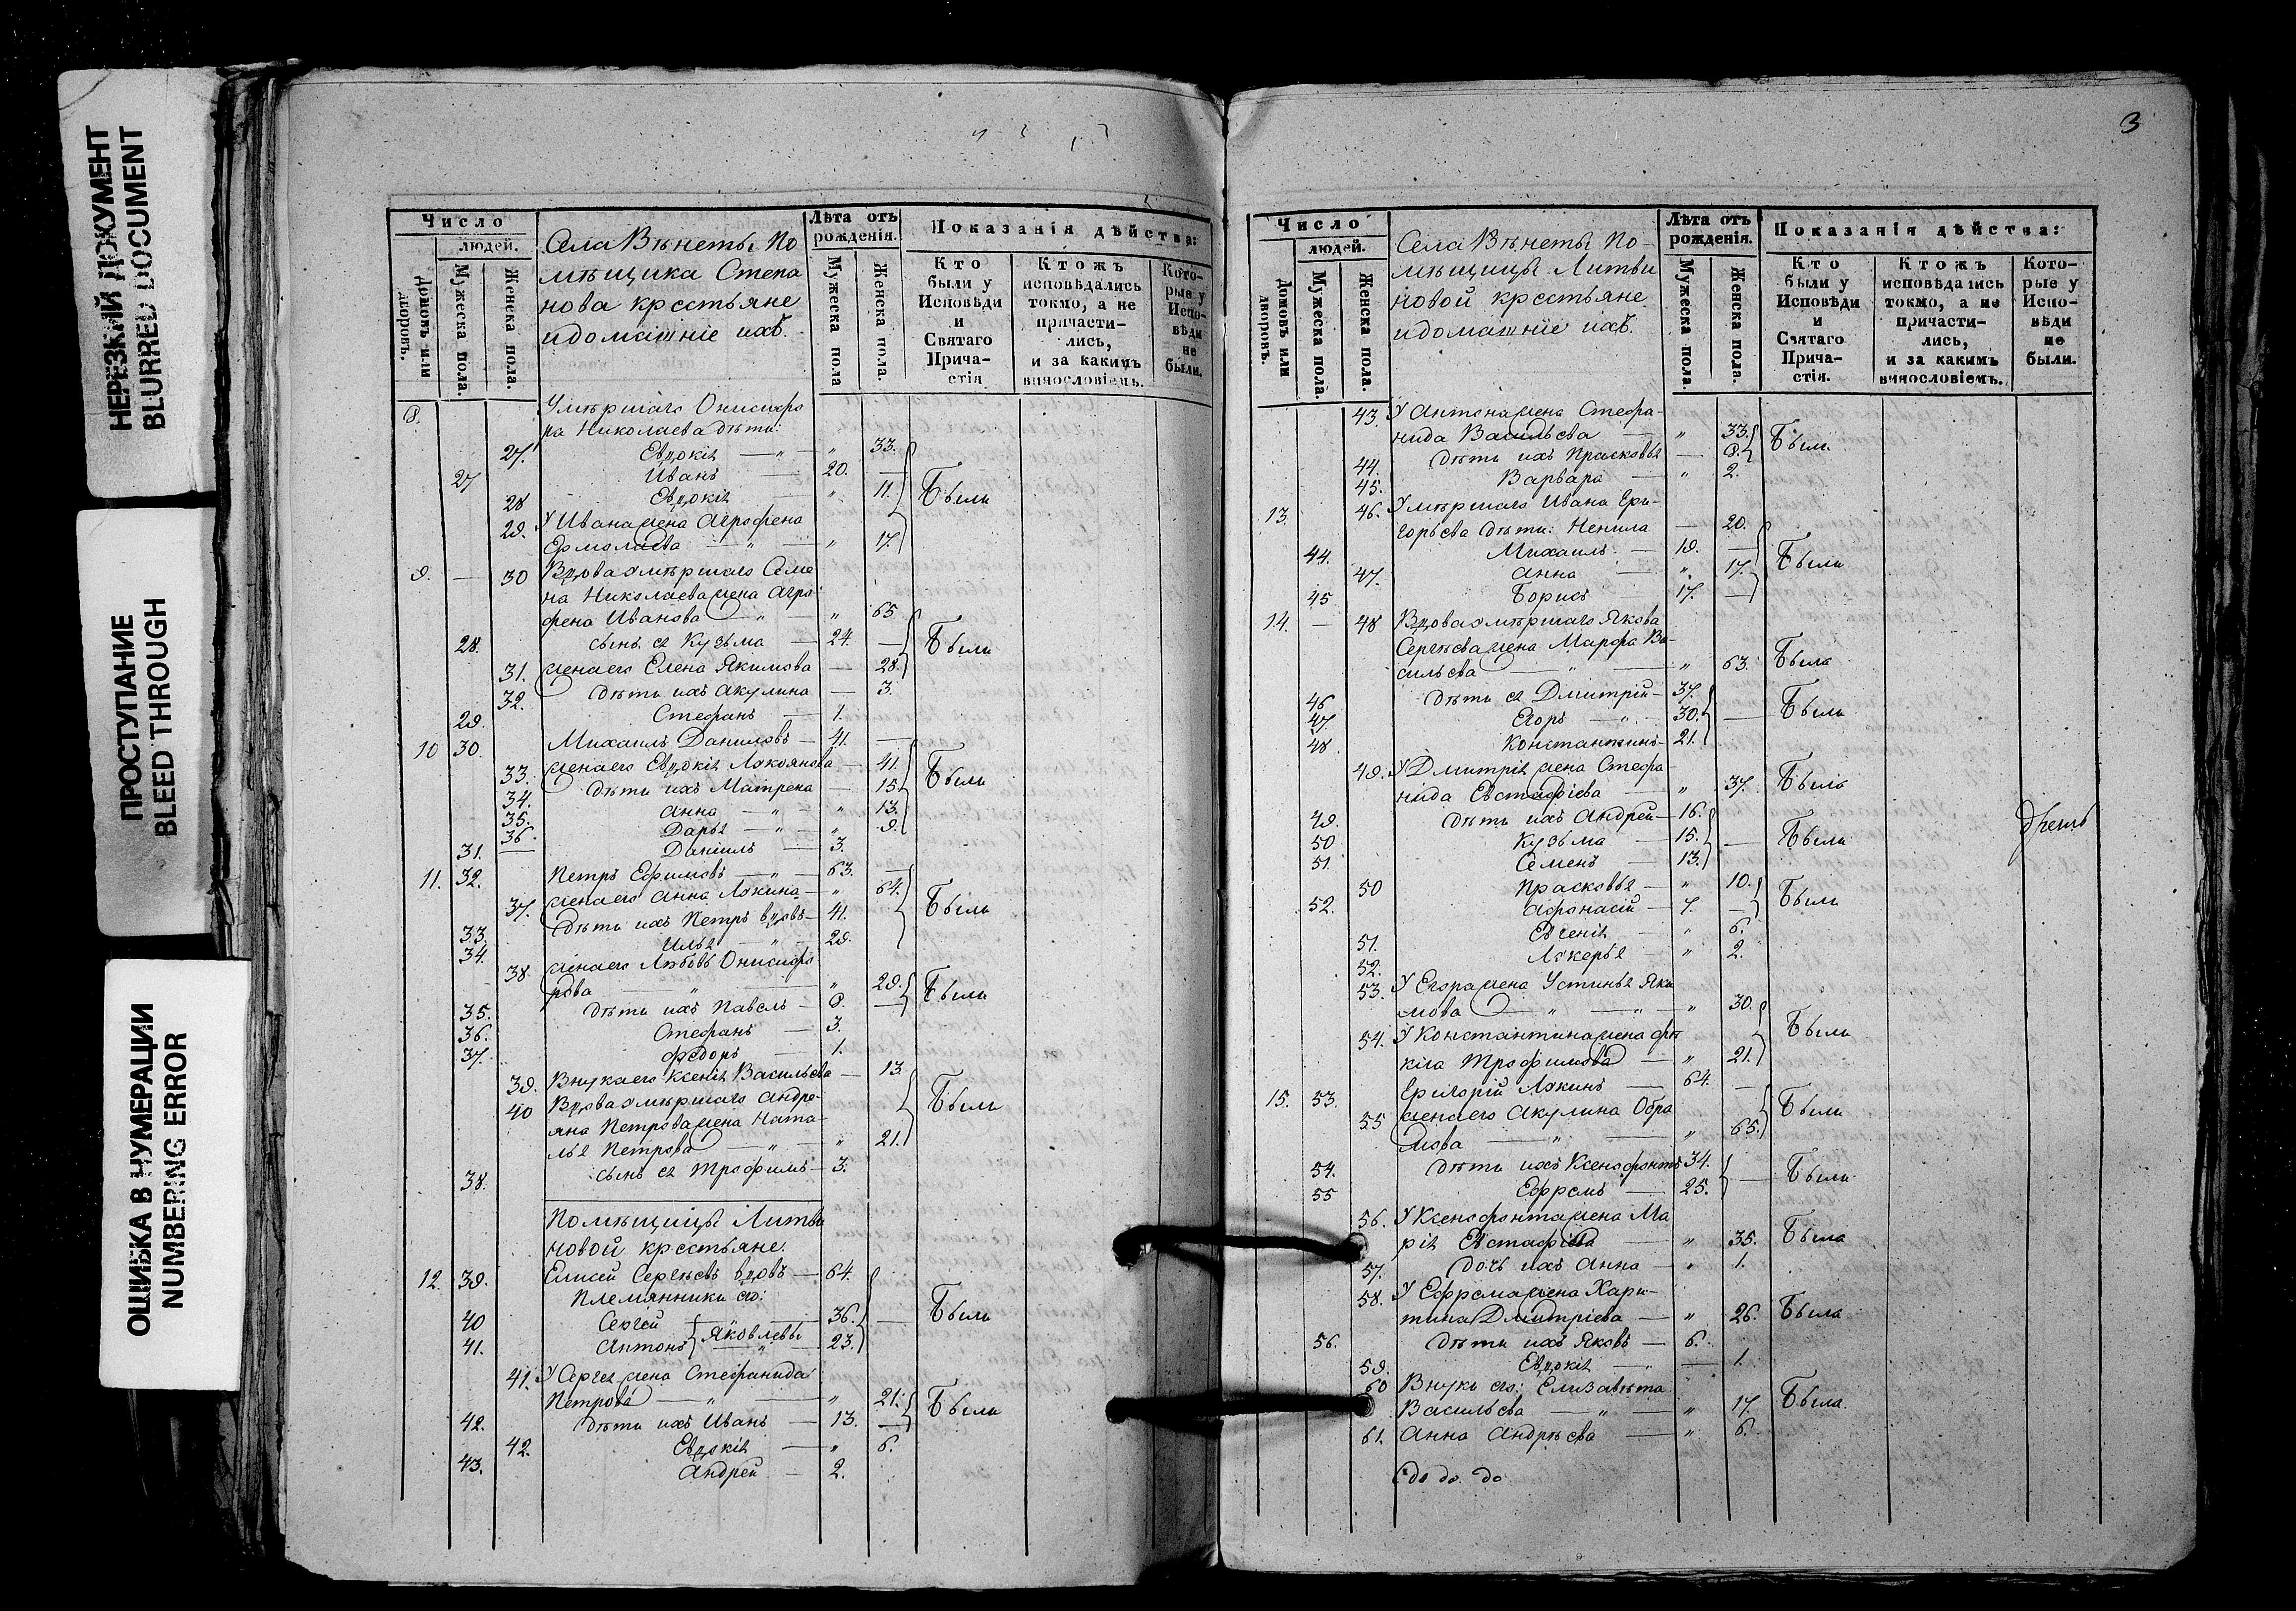 НЕРЕЗКИЙ ДОКУМЕНТ
BLURRED DOCUMENT
ПРОСТУПАНИЕ
BLEED THROUGH
ОШИБКА В НУМЕРАЦИИ
NUMBERING ERROR
Число
людей.
Домовъ или дворовъ.
Мужеска пола.
Женска пола.
Села Вѣнеты По
мѣщика Степа
нова крестьяне
и домашніе ихъ.
Лѣта отъ рожденія.
Мужеска пола
Женска пола.
Показанія дѣйства:
Кто были у Исповѣди и Святаго Прича-стія
Ктожъ исповѣдались токмо, а не причасти-лись, и за какимъ винословіемъ.
Кото-рые у Испо-вѣди не были.
8. Умѣршаго Онисифо
ра Николаева дѣти:
27. Евдокія — " — " 33.
27 Иванъ — 20. — Были
28 Евдокія — " 11.
29. У Ивана жена Агрофена
Ермолаева — " — " 17.
9. — 30 Вдова умѣршаго Семе
на Николаева жена Агро
фена Иванова — " — " 65
28. сынъ ея Кузьма — 24. — Были
31. жена его Елена Якимова — 28.
32. дѣти ихъ Акулина — 3.
29. Стефанъ — 1.
10 30. Михаилъ Даниловъ — 41. —
33. жена его Евдокія Лукоянова — 41. Были
34. дѣти ихъ Матрена — 15.
35. Анна — " — " 13.
36. Дарья — " — " 9.
31. Даніилъ — 3.
11. 32. Петръ Ефимовъ — " — 63. —
37. жена его Анна Лукина — " 64.
33. дѣти ихъ Петръ вдовъ — 41. Были
34. Илья — " — 29.
38. жена его Любовь Онисифо
рова — " — " 29. Были
35. дѣти ихъ Павелъ — 8. —
36. Стефанъ — 3.
37. Федоръ — 1.
39. Внука его Ксенія Васильева — 13.
40 Вдова умѣршаго Андро-
яна Петрова жена Ната- Были
лья Петрова — " — " 21.
38. сынъ ея Трофимъ — 3.
Помѣщицы Литви
новой крестьяне.
12. 39. Елисей Сергѣевъ вдовъ — 64.
Племянники его:
40 Сергей 36. — Были
41. Антонъ } Яковлевы — " — 23.
41. У Сергея жена Стефанида
Петрова — " — " 21. Были
42. дѣти ихъ Иванъ — 13. —
42. Евдокія — " 6.
43. Андрей — 2.
3
Число
людей.
Домовъ или дворовъ.
Мужеска пола
Женска пола.
Села Вѣнеты По-
мѣщицы Литви
новой крестьяне
и домашніе ихъ.
Лѣта отъ рожденія.
Мужеска пола.
Женска пола.
Показанія дѣйства:
Кто были у Исповѣди и Святаго Прича-стія.
Ктожъ исповѣдались токмо, а не причасти-лись, и за какимъ винословіемъ.
Кото-рые у Испо-вѣди не были.
43. У Антона жена Стефа-
нида Васильева — " 33. Были
44. дѣти ихъ Прасковья — 8.
45. Варвара — " 2.
13. 46. Умѣршаго Ивана Гри-
горьева дѣти: Ненила — 20.
44. Михаилъ — 19. — Были
47. Анна — " 17.
45 Борисъ 17. —
14. — 48 Вдова умѣршаго Якова
Сергѣева жена Марфа Ва-
сильева — " — " 63. Была
46 дѣти ея Дмитрій — 37.
47. Егоръ — " — 30. — Были
48. Константинъ — 21.
49. У Дмитрія жена Стефа-
нида Евстафіева — " 37. Была
49. дѣти ихъ Андрей — 16.
50 Кузьма — 15. — Были
51. Семенъ — 13.
50 Прасковья — " 10. Были
52. Афонасій — 7. —
51. Евгенія — " 6.
52. Лукерья — " 2.
53. У Егора жена Устинья Яки
мова — " — " — " 30. Были
54. У Константина жена Фе
кла Трофимова — " 21.
15. 53. Григорій Лукинъ — 64. —
55 жена его Акулина Обра Были
мова — " — " 65.
54. дѣти ихъ Ксенофонтъ 34. — Были
55 Ефремъ — 25.
56. У Ксенофонта жена Ма
рія Евстафіева — " 35. Была
57. дочь ихъ Анна — " 1.
58. У Ефрема жена Хари-
тина Дмитріева — " 26. Была
56. дѣти ихъ Яковъ — 6.
59. Евдокія — " — 1.
60 Внуки его: Елизавѣта
Васильева — " — " 17. Была
61. Анна Андрѣева — " 6.